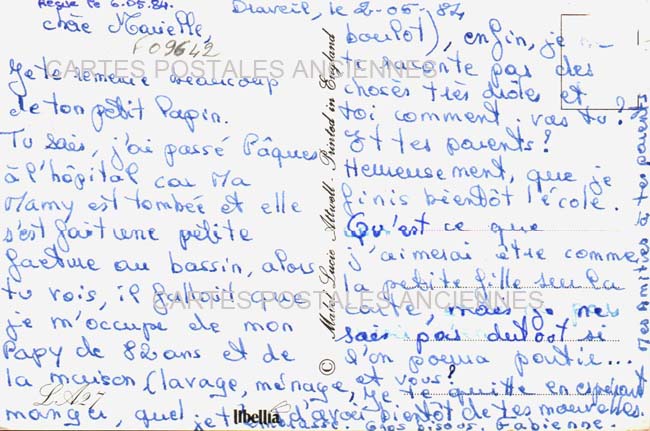 Reçue le 6.05.84.
Draveil, le 2-05-84
Chère Marielle,
F09642
CARTES POSTALES ANCIENNES
Je te remercie beaucoup
de ton petit lapin.
Tu sais, j'ai passé Pâques
à l'hôpital car Ma
Mamy est tombée et elle
s'est fait une petite
facture au bassin, alors
tu vois, il fallait que
je m'occupe de mon
Papy de 82 ans et de
la maison (lavage, ménage,
manger, quel
boulot), enfin, je
te raconte pas des
choses très drôles et
toi comment vas tu?
Et tes parents?
Heureusement, que je
finis bientôt l'école.
Qu'est ce que
j'aimerai être comme
la petite fille sur la
carte, mais je ne
sais pas du tout si
l'on pourra partir...
et vous?
Je te quitte en espérant
d'avoir bientôt de tes nouvelles.
je t'embrasse. Gros bisous. Fabienne.
Mes Amitiés à tes parents
CARTES POSTALES ANCIENNES
© Mabel Lucie Attwell · Printed in England
LA27
libellia